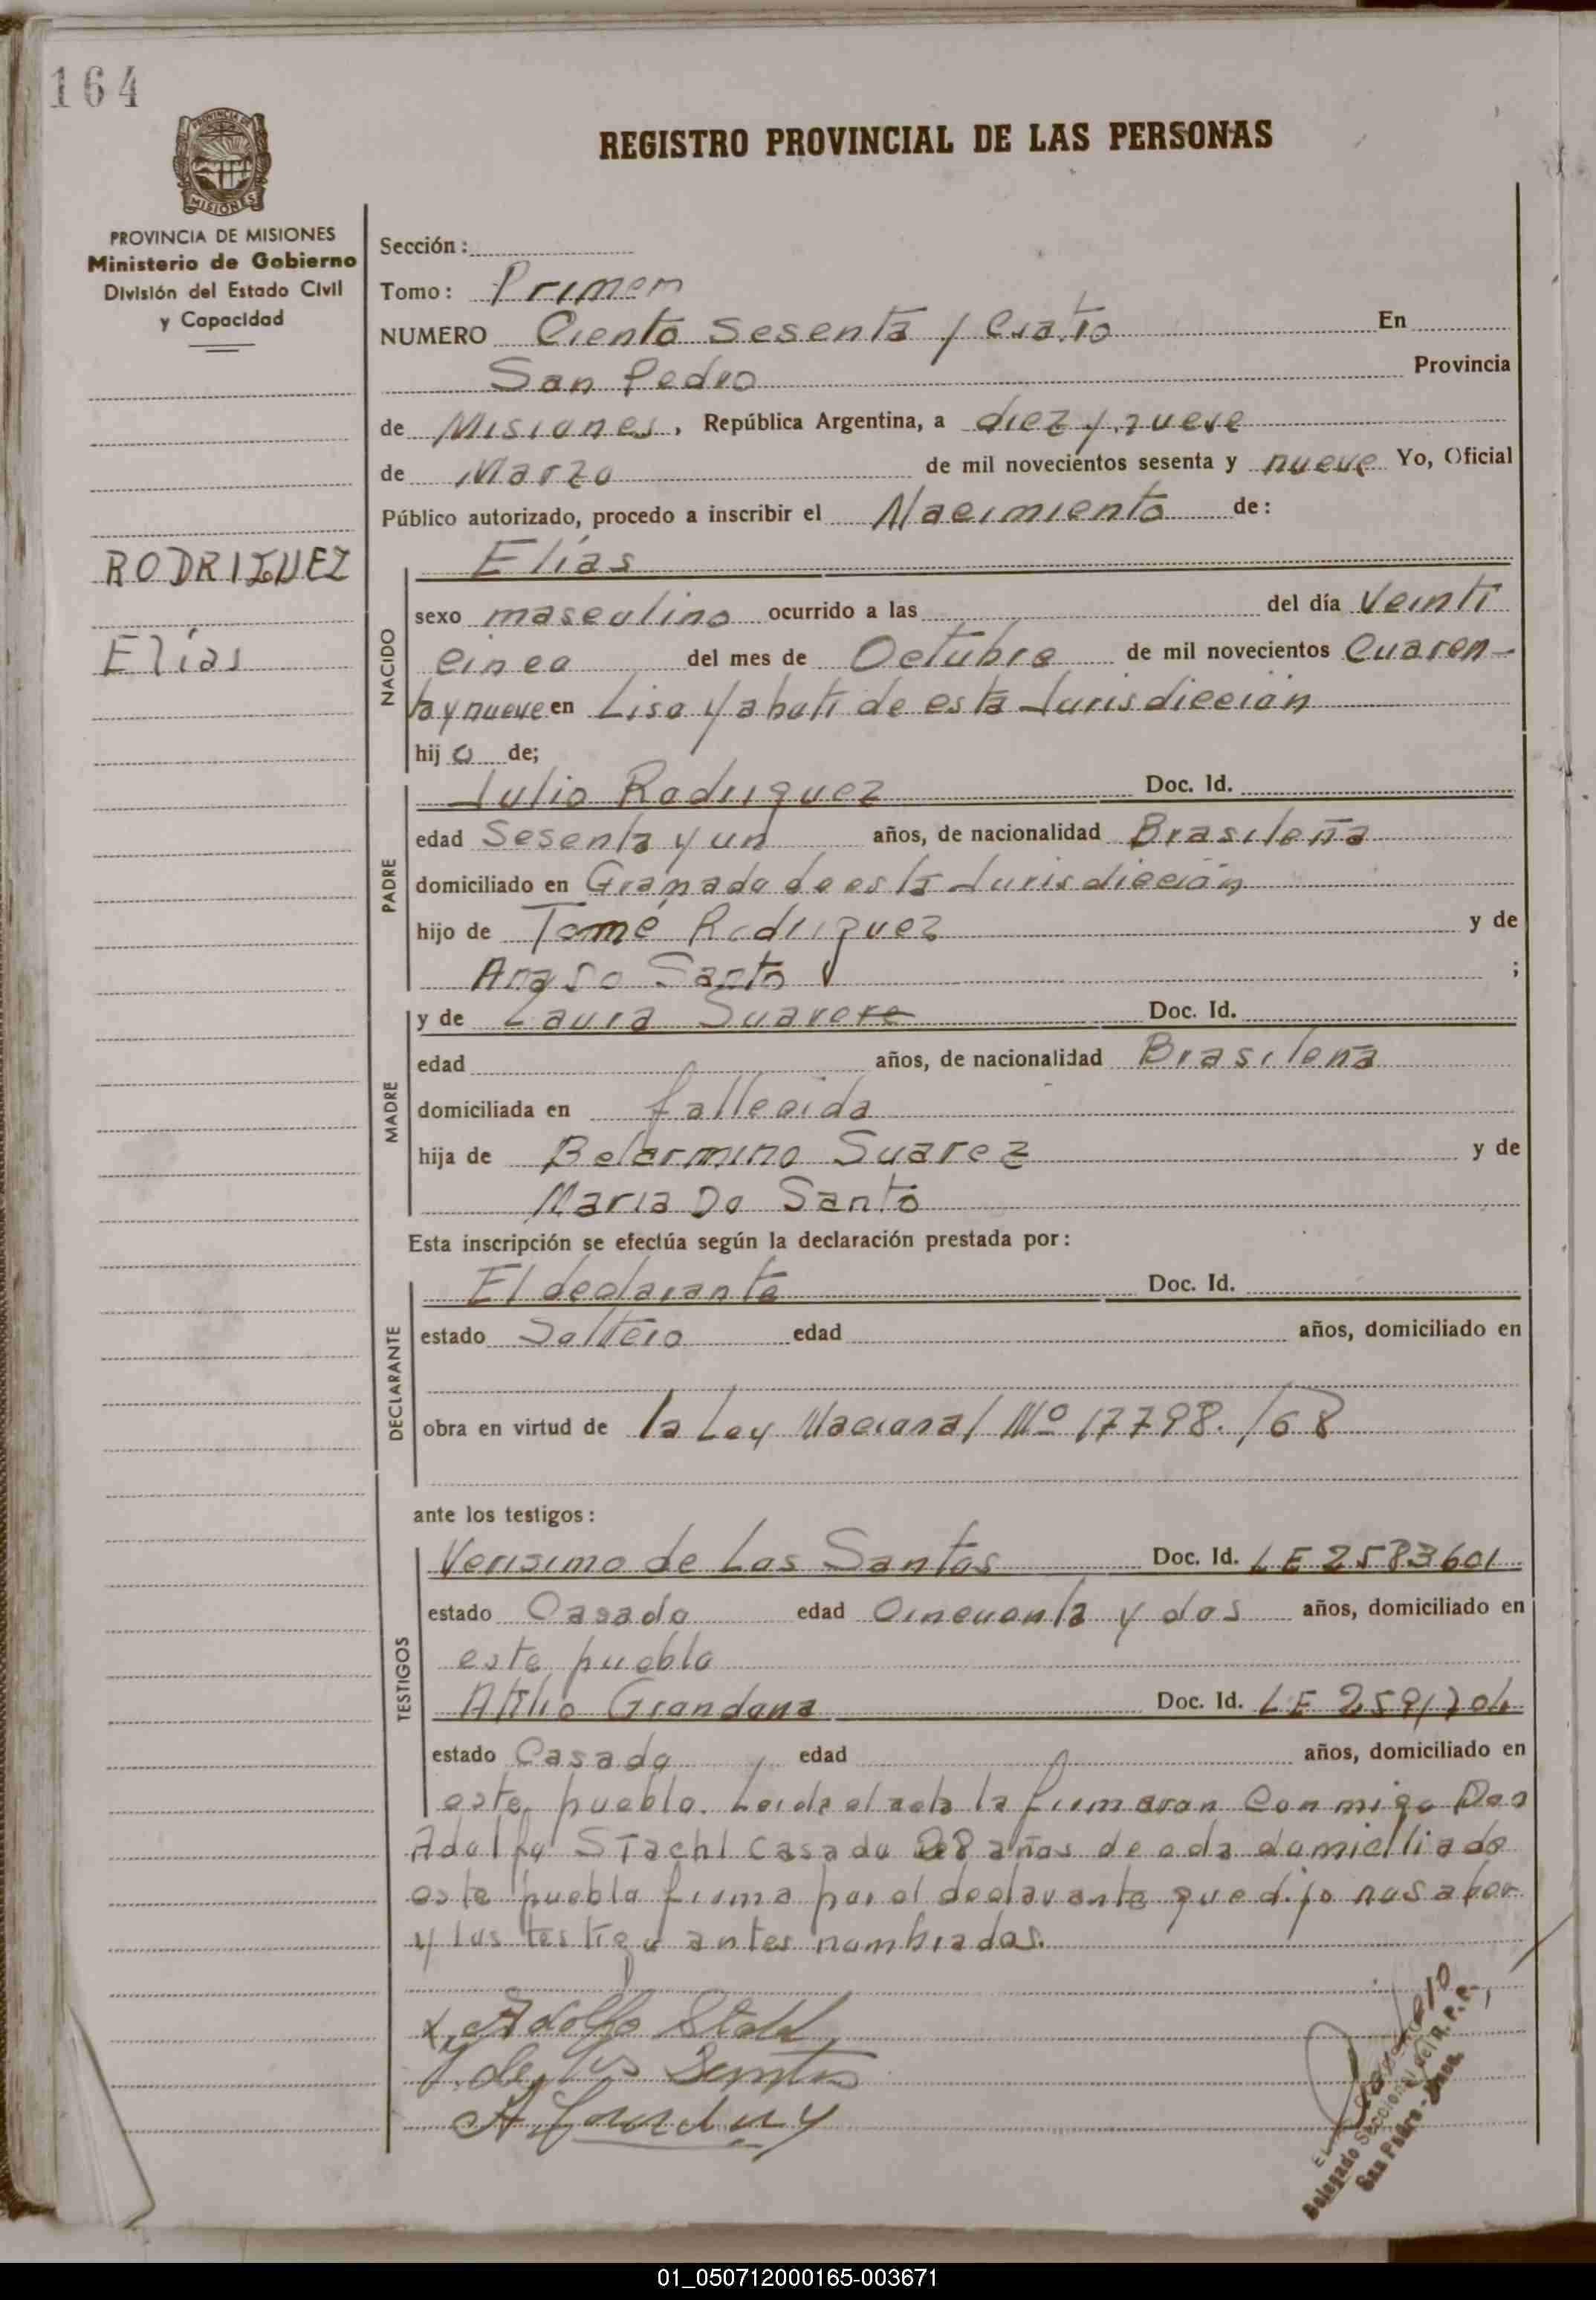 164
PROVINCIA DE
MISIONES
REGISTRO PROVINCIAL DE LAS PERSONAS
PROVINCIA DE MISIONES
Ministerio de Gobierno
División del Estado Civil
y Capacidad
RODRIGUEZ
Elías
Sección:
Tomo: Primero
NUMERO Ciento sesenta y Cuatro En
San Pedro Provincia
de Misiones, República Argentina, a diez y nueve
de Marzo de mil novecientos sesenta y nueve Yo, Oficial
Público autorizado, procedo a inscribir el Nacimiento de:
Elías
NACIDO
sexo masculino ocurrido a las del día Veinti
cinco del mes de Octubre de mil novecientos Cuaren-
ta y nueve en Liso Yaboti de esta Jurisdiccion
hijo de;
PADRE
Julio Rodriguez Doc. Id.
edad Sesenta y un años, de nacionalidad Brasileña
domiciliado en Gramado de esta Jurisdiccion
hijo de Tomé Rodriguez y de
Santo ;
MADRE
y de Laura Suarez Doc. Id.
edad años, de nacionalidad Brasileña
domiciliada en fallecida
hija de Belarmino Suarez y de
Maria Do Santo
Esta inscripción se efectúa según la declaración prestada por:
DECLARANTE
El declarante Doc. Id.
estado Soltero edad años, domiciliado en
obra en virtud de la Ley Nacional Nº 17798./68
ante los testigos:
TESTIGOS
Verisimo de Los Santos Doc. Id. LE 2583601
estado Casado edad Cincuenta y dos años, domiciliado en
este pueblo
Atilio Doc. Id. LE 2591704
estado Casado edad años, domiciliado en
este pueblo. Leida el acta la firmaran Conmigo Don
Adolfo Stachl casado 28 años de eda domicilliado
este pueblo firma por el declarante que dijo no saber
y los testigo antes nombrados.
x Adolfo
V. de los Santos
Delegado Seccional del R. P. P.
San Pedro - Mnes.
01_050712000165-003671